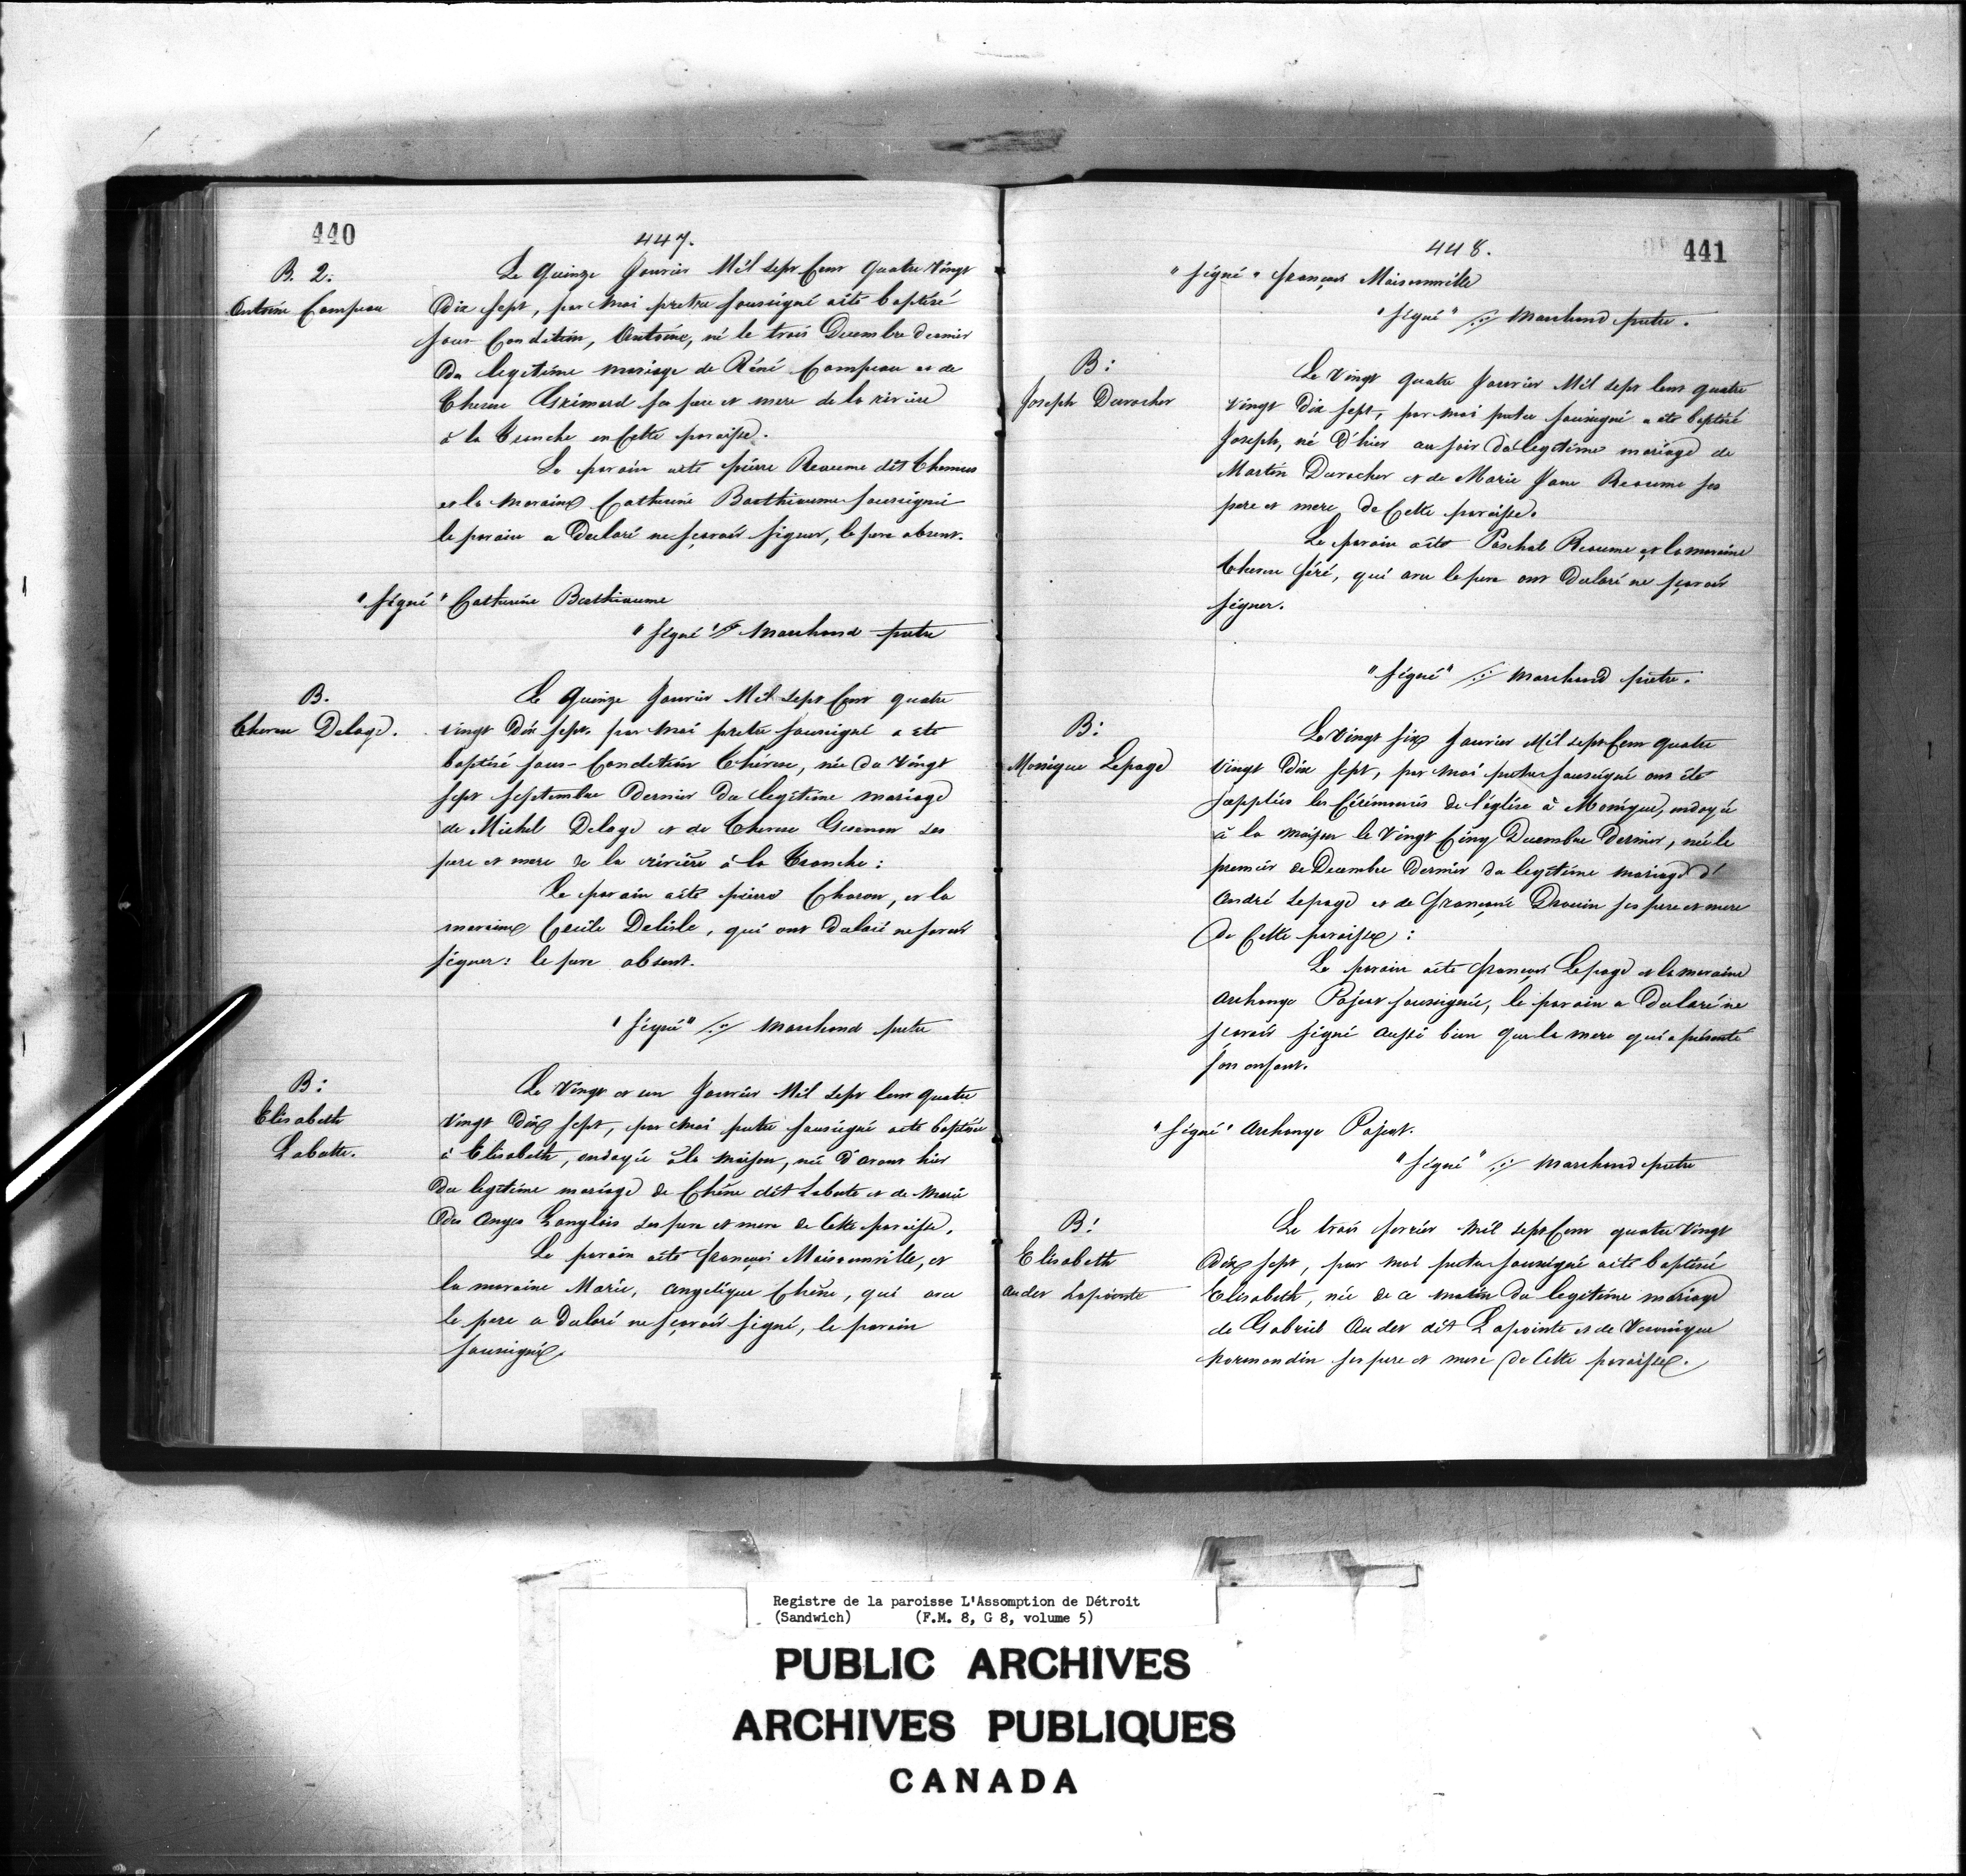 440
447.
B. 2.
Antoine Campeau
Le Quinze Janvier Mil sept Cent Quatre Vingt
Dix sept, par moi pretre soussigné aété baptisé
sous-Condition, Antoine, né le trois Decembre dernier
du legitime mariage de Réné Campeau et de
Therese Grimard sa pere et mere de la riviere
à la Tranche en Cette paroisse.
Le parain aété pierre Reaume dit Thomas
et la maraine Catherine Barthiaume soussignée
le parain a Declaré ne sçavoir signer, le pere absent.
"signé" Catherine Barthiaume
"signé" Marchand pretre
B.
Therese Delage.
Le Quinze Janvier Mil sept Cent quatre
vingt Dix sept. par moi pretre soussigné a été
baptisé sous-Condition Therese, née du Vingt
sept septembre Dernier du legitime mariage
de Michel Delage et de Therese ses
pere et mere de la rivière à la Tranche :
Le parain aété pierre Charon, et la
maraine Cecile Delisle, qui ont Declaré ne savoir
signer : le pere absent.
"signé" Marchand pretre
B :
Elisabeth
Labutte.
Le Vingt et un Janvier Mil sept Cent quatre
Vingt Dix sept, par moi pretre soussigné aété baptisée
à Elisabeth, ondoyée à la maison, née d'avant hier
du legitime mariage de Chêne dit Labute et de Marie
des Anges Langlois ses pere et mere de Cette paroisse.
Le parain aété françois Maisonville, et
la maraine Marie, Angelique Chêne, qui avec
le pere a Declaré ne sçavoir signé, le parain
soussigné.
448.
441
"signé" françois Maisonville
"signé" Marchand pretre.
B :
Joseph Durocher
Le Vingt quatre Janvier Mil sept Cent quatre
Vingt Dix sept, par moi pretre soussigné a été baptisé
Joseph, né D'hier au soir du legitime mariage de
Martin Durocher et de Marie Jane Reaume ses
pere et mere de Cette paroisse.
Le parain aété Paschal Reaume et la maraine
Therese féré, qui avec le pere ont Declaré ne sçavoir
signer.
"signé" Marchand pretre.
B :
Monique Lepage
Le Vingt six Janvier Mil sept Cent quatre
Vingt Dix sept, par moi pretre soussigné ont été
supplées les Cérémonies de l'église à Monique, ondoyée
à la maison le Vingt Cinq Decembre Dernier, née le
premier de Decembre Dernier du legitime mariage d'
André Lepage et de françoise Drouin ses pere et mere
de Cette paroisse :
Le parain aété françois Lepage et la maraine
Archange Pajeot soussignée, le parain a Declaré ne
sçavoir signé aussi bien que la mere qui a présenté
son enfant.
"signé" Archange Pajeot.
"signé" Marchand pretre
B :
Elisabeth
Audet Lapointe
Le trois fevrier Mil sept Cent quatre Vingt
Dix sept, par moi pretre soussigné aété baptisée
Elisabeth, née de ce matin du legitime mariage
de Gabriel Audet dit Lapointe et de Veronique
Normandin ses pere et mere de Cette paroisse.
Registre de la paroisse L'Assomption de Détroit
(Sandwich) (F.M. 8, G 8, volume 5)
PUBLIC ARCHIVES
ARCHIVES PUBLIQUES
CANADA